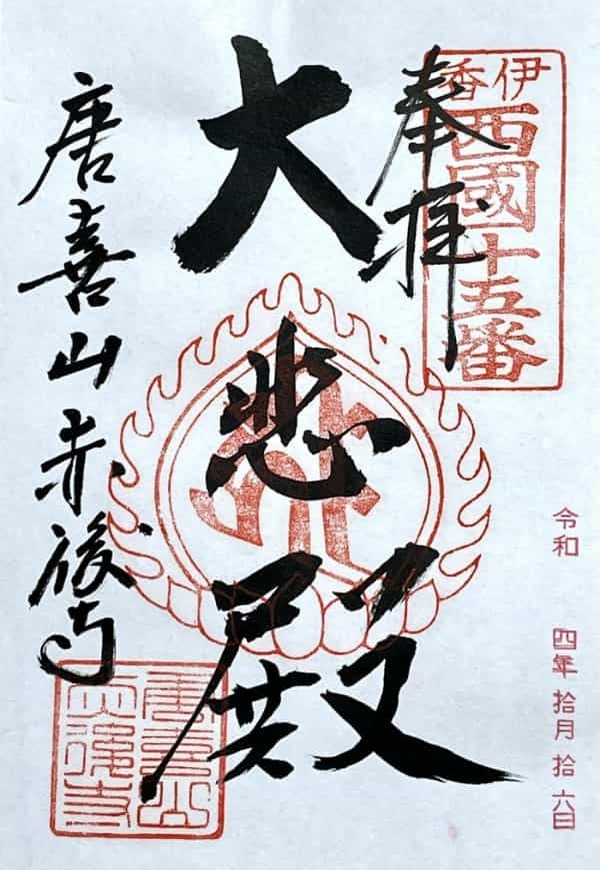 伊香
西國十五番
奉拝
大悲殿
唐喜山赤後寺
令和 四年 拾月 拾六日
唐喜山
赤後寺